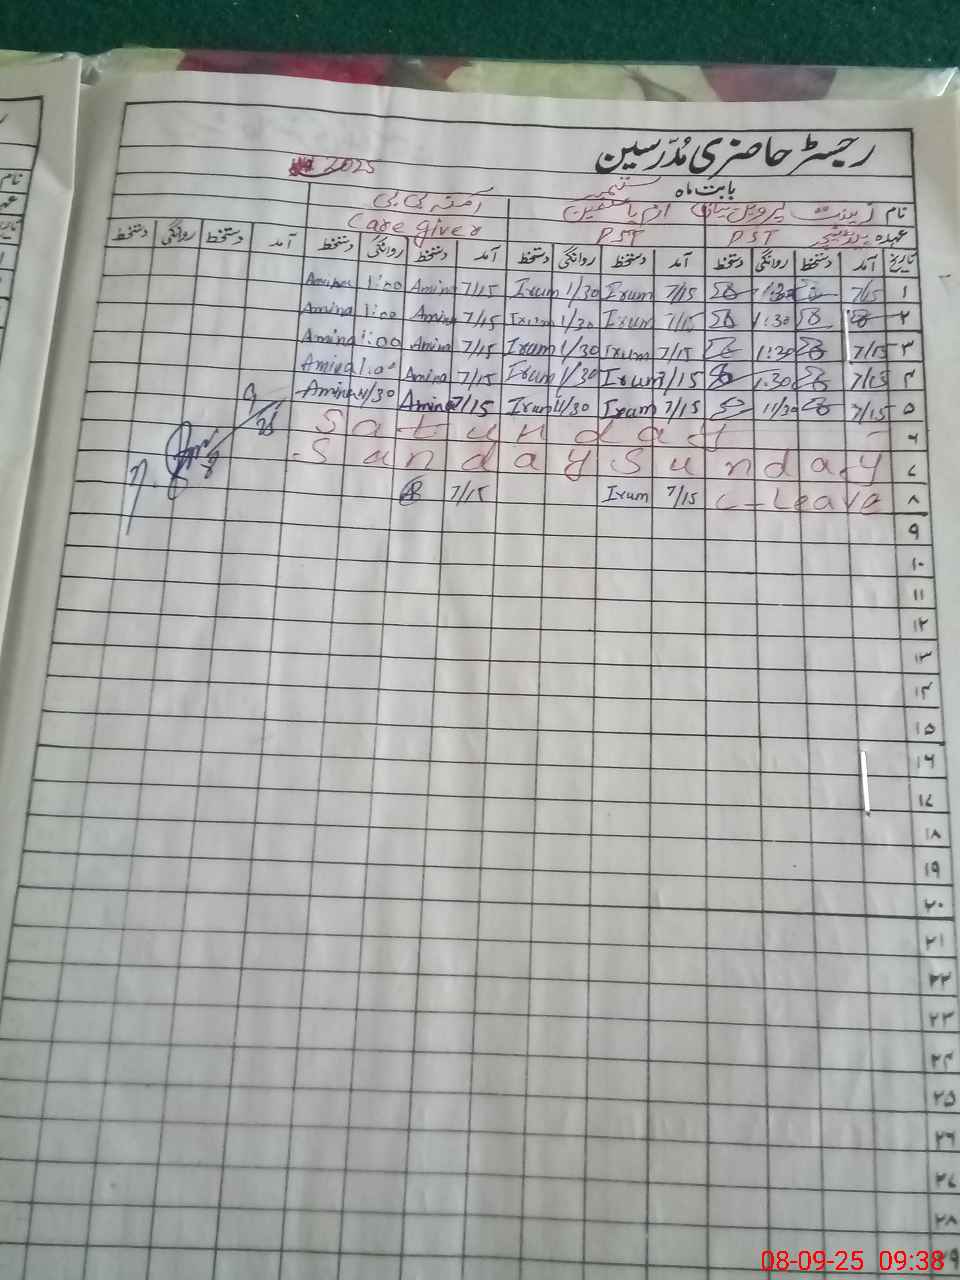 رجسٹر حاضری مُدرّسین
2025
بابت ماہ ستمبر
نام ارم یاسمین آمنہ بی بی
عہدہ PST PST Care giver
تاریخ آمد دستخط روانگی دستخط آمد دستخط روانگی دستخط آمد دستخط روانگی دستخط آمد دستخط روانگی دستخط
۱ 7/15 1:30 7/15 Irum 1/30 Irum 7/15 Amina 1:00 Amina
۲ 1:30 7/15 Irum 1/30 Irum 7/15 Amina 1:00 Amina
۳ 7/15 1:30 7/15 Irum 1/30 Irum 7/15 Amina 1:00 Amina
۴ 7/15 1:30 7/15 Irum 1/30 Irum 7/15 Amina 1:00 Amina
۵ 7/15 11/30 7/15 Irum 11/30 Irum 7/15 Amina 11/30 Amina
۶ Saturday
۷ Sunday Sunday
۸ C-Leave 7/15 Irum 7/15
۹
۱۰
۱۱
۱۲
۱۳
۱۴
۱۵
۱۶
۱۷
۱۸
۱۹
۲۰
۲۱
۲۲
۲۳
۲۴
۲۵
۲۶
۲۷
۲۸
۲۹
08-09-25 09:38